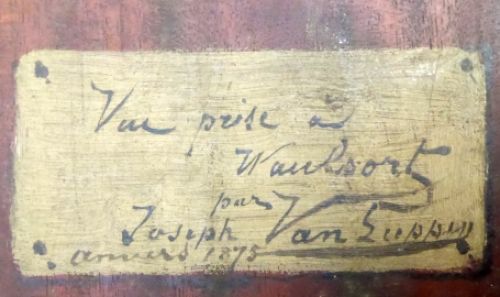 Vue prise à
Waulsort
par
Joseph Van Luppen
anvers 1875